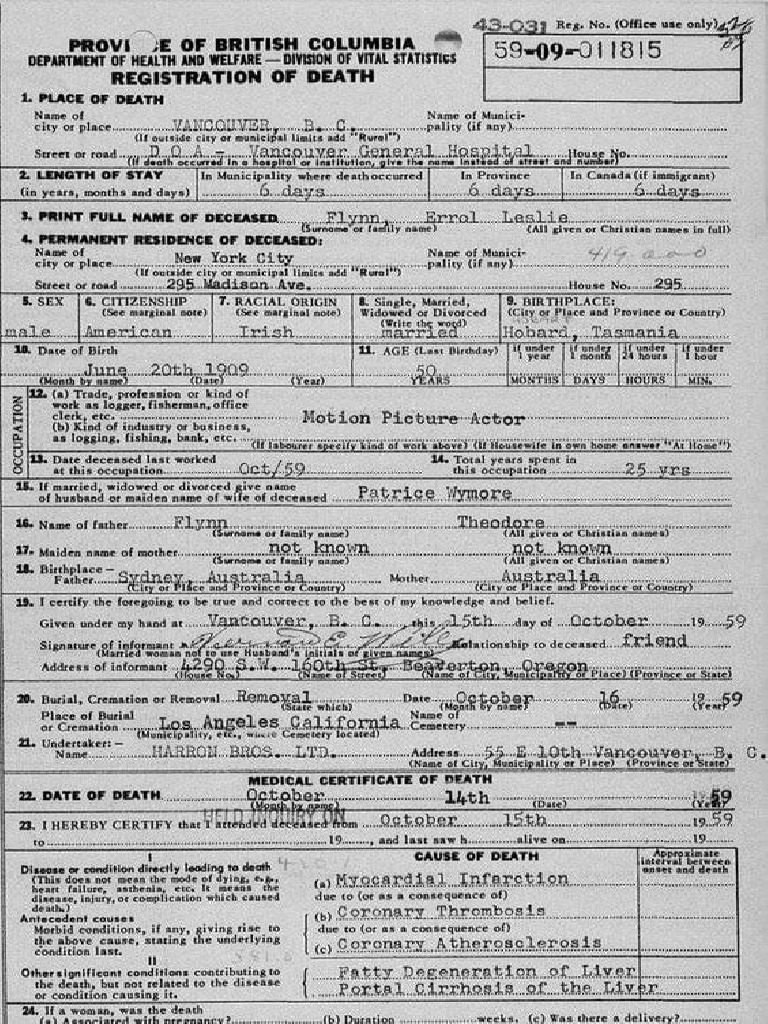 43-031 Reg. No. (Office use only)
PROVI CE OF BRITISH COLUMBIA
DEPARTMENT OF HEALTH AND WELFARE — DIVISION OF VITAL STATISTICS
REGISTRATION OF DEATH
59-09-011815
1. PLACE OF DEATH
Name of city or place VANCOUVER, B. C. Name of Municipality (if any)
(If outside city or municipal limits add "Rural")
Street or road D O A - Vancouver General Hospital House No.
(If death occurred in a hospital or institution, give the name instead of street and number)
2. LENGTH OF STAY In Municipality where death occurred In Province In Canada (if immigrant)
(in years, months and days) 6 days 6 days 6 days
3. PRINT FULL NAME OF DECEASED Flynn, Errol Leslie
(Surname or family name) (All given or Christian names in full)
4. PERMANENT RESIDENCE OF DECEASED:
Name of city or place New York City Name of Municipality (if any) 419 000
(If outside city or municipal limits add "Rural")
Street or road 295 Madison Ave. House No. 295
5. SEX 6. CITIZENSHIP 7. RACIAL ORIGIN 8. Single, Married, 9. BIRTHPLACE:
(See marginal note) (See marginal note) Widowed or Divorced (City or Place and Province or Country)
(Write the word)
male American Irish married Hobard, Tasmania
10. Date of Birth 11. AGE (Last Birthday) If under 1 year If under 1 month If under 24 hours If under 1 hour
June 20th 1909 50
(Month by name) (Date) (Year) YEARS MONTHS DAYS HOURS MIN.
OCCUPATION
12. (a) Trade, profession or kind of
work as logger, fisherman, office
clerk, etc. Motion Picture Actor
(b) Kind of industry or business,
as logging, fishing, bank, etc.
(If labourer specify kind of work above) (If Housewife in own home answer "At Home")
13. Date deceased last worked 14. Total years spent in
at this occupation Oct/59 this occupation 25 yrs
15. If married, widowed or divorced give name
of husband or maiden name of wife of deceased Patrice Wymore
16. Name of father Flynn Theodore
(Surname or family name) (All given or Christian names)
17. Maiden name of mother not known not known
(Surname or family name) (All given or Christian names)
18. Birthplace—
Father Sydney, Australia Mother Australia
(City or Place and Province or Country) (City or Place and Province or Country)
19. I certify the foregoing to be true and correct to the best of my knowledge and belief.
Given under my hand at Vancouver, B. C. this 15th day of October 19 59
Signature of informant Relationship to deceased friend
(Married woman not to use Husband's initials of given names)
Address of informant 4290 S.W. 160th St. Beaverton, Oregon
(House No.) (Name of Street) (Name of City, Municipality or Place) (Province or State)
20. Burial, Cremation or Removal Removal Date October 16 19 59
(State which) (Month by name) (Date) (Year)
Place of Burial or Cremation Los Angeles California Name of Cemetery --
(Municipality, etc., where Cemetery located)
21. Undertaker:—
Name HARRON BROS. LTD. Address 55 E 10th Vancouver, B. C.
(Name of City, Municipality or Place) (Province or State)
MEDICAL CERTIFICATE OF DEATH
22. DATE OF DEATH October 14th 19 59
(Month by name) (Date) (Year)
HELD INQUIRY ON
23. I HEREBY CERTIFY that I attended deceased from October 15th 19 59
to 19 , and last saw h alive on 19
I
Disease or condition directly leading to death 420.1
(This does not mean the mode of dying, e.g.,
heart failure, asthenia, etc. It means the
disease, injury, or complication which caused
death.)
Antecedent causes
Morbid conditions, if any, giving rise to
the above cause, stating the underlying
condition last. 581.0
II
Other significant conditions contributing to
the death, but not related to the disease
or condition causing it.
CAUSE OF DEATH
Approximate interval between onset and death
(a) Myocardial Infarction
due to (or as a consequence of)
(b) Coronary Thrombosis
due to (or as a consequence of)
(c) Coronary Atherosclerosis
Fatty Degeneration of Liver
Portal Cirrhosis of the Liver
24. If a woman, was the death
(a) Associated with pregnancy? (b) Duration weeks. (c) Was there a delivery?